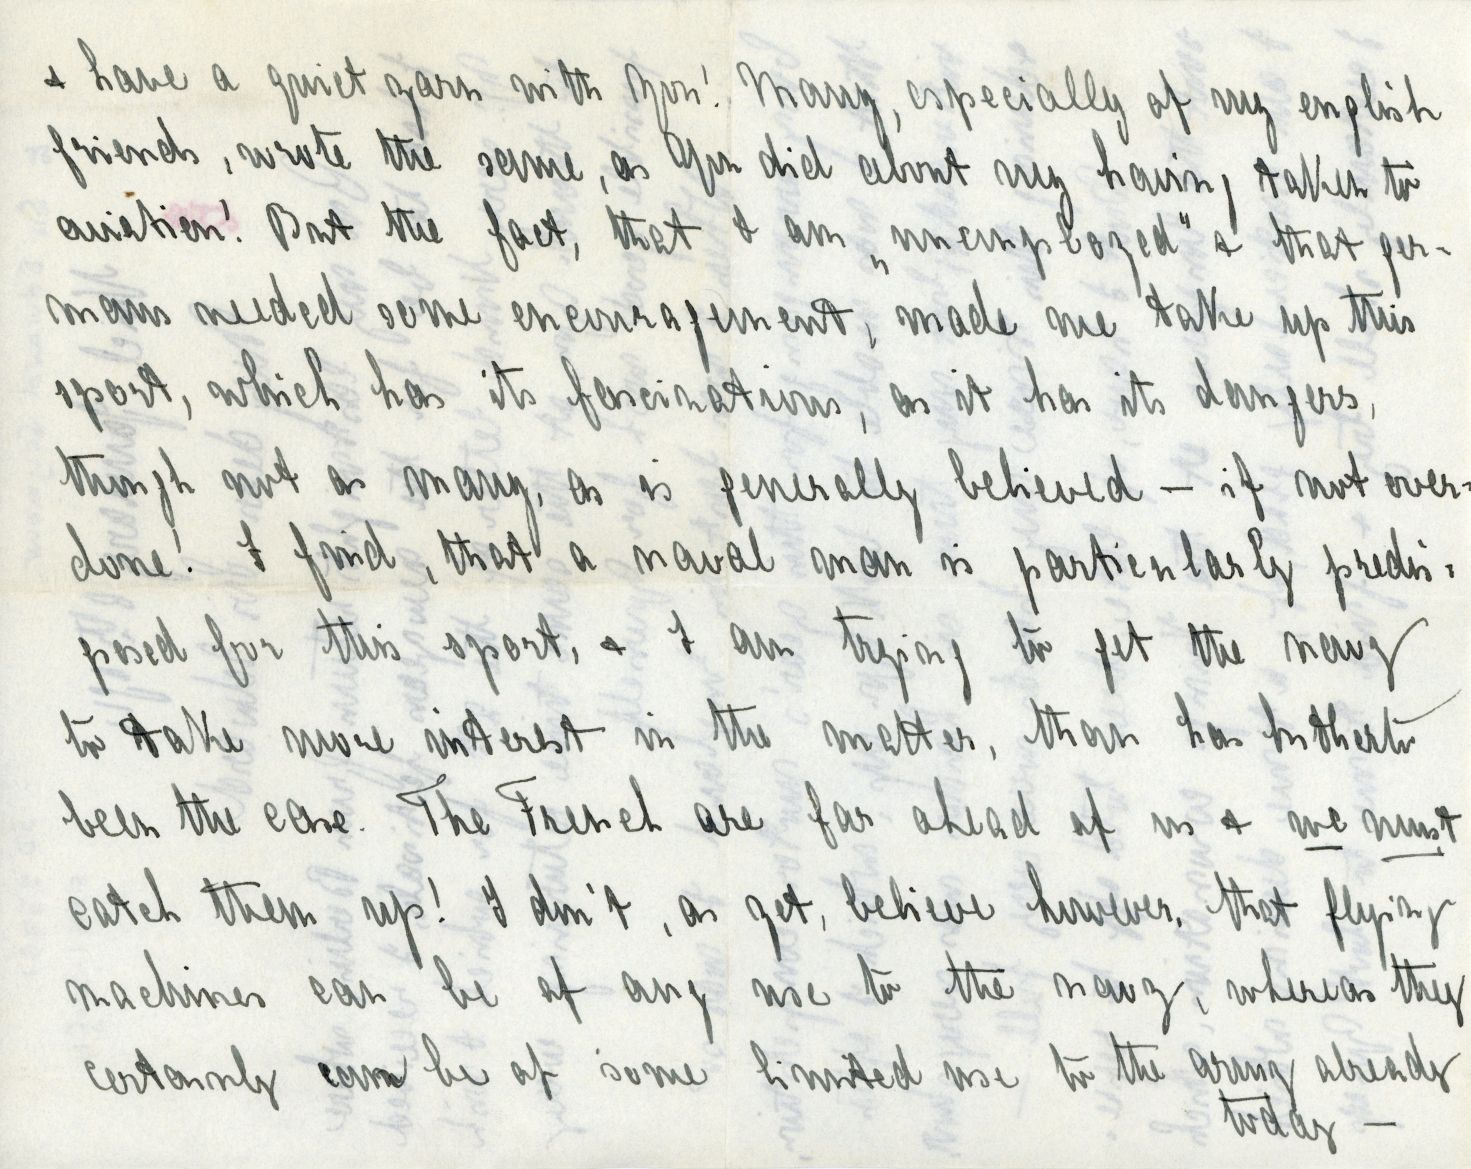 & have a quiet yarn with you! Many, especially of my english
friends, wrote the same, as you did about my having taken to
aviation! But the fact, that I am „unemployed" & that ger-
mans needed some encouragement, made me take up this
sport, which has its fascinations, as it has its dangers,
though not as many, as is generally believed — if not over-
done! I find, that a naval man is particularly predis-
posed for this sport, & I am trying to get the navy
to take more interest in the matter, than has hitherto
been the case. The French are far ahead of us & we must
catch them up! I don't, as yet, believe however, that flying
machines can be of any use to the navy, whereas they
certainly can be of some limited use to the army already
today —